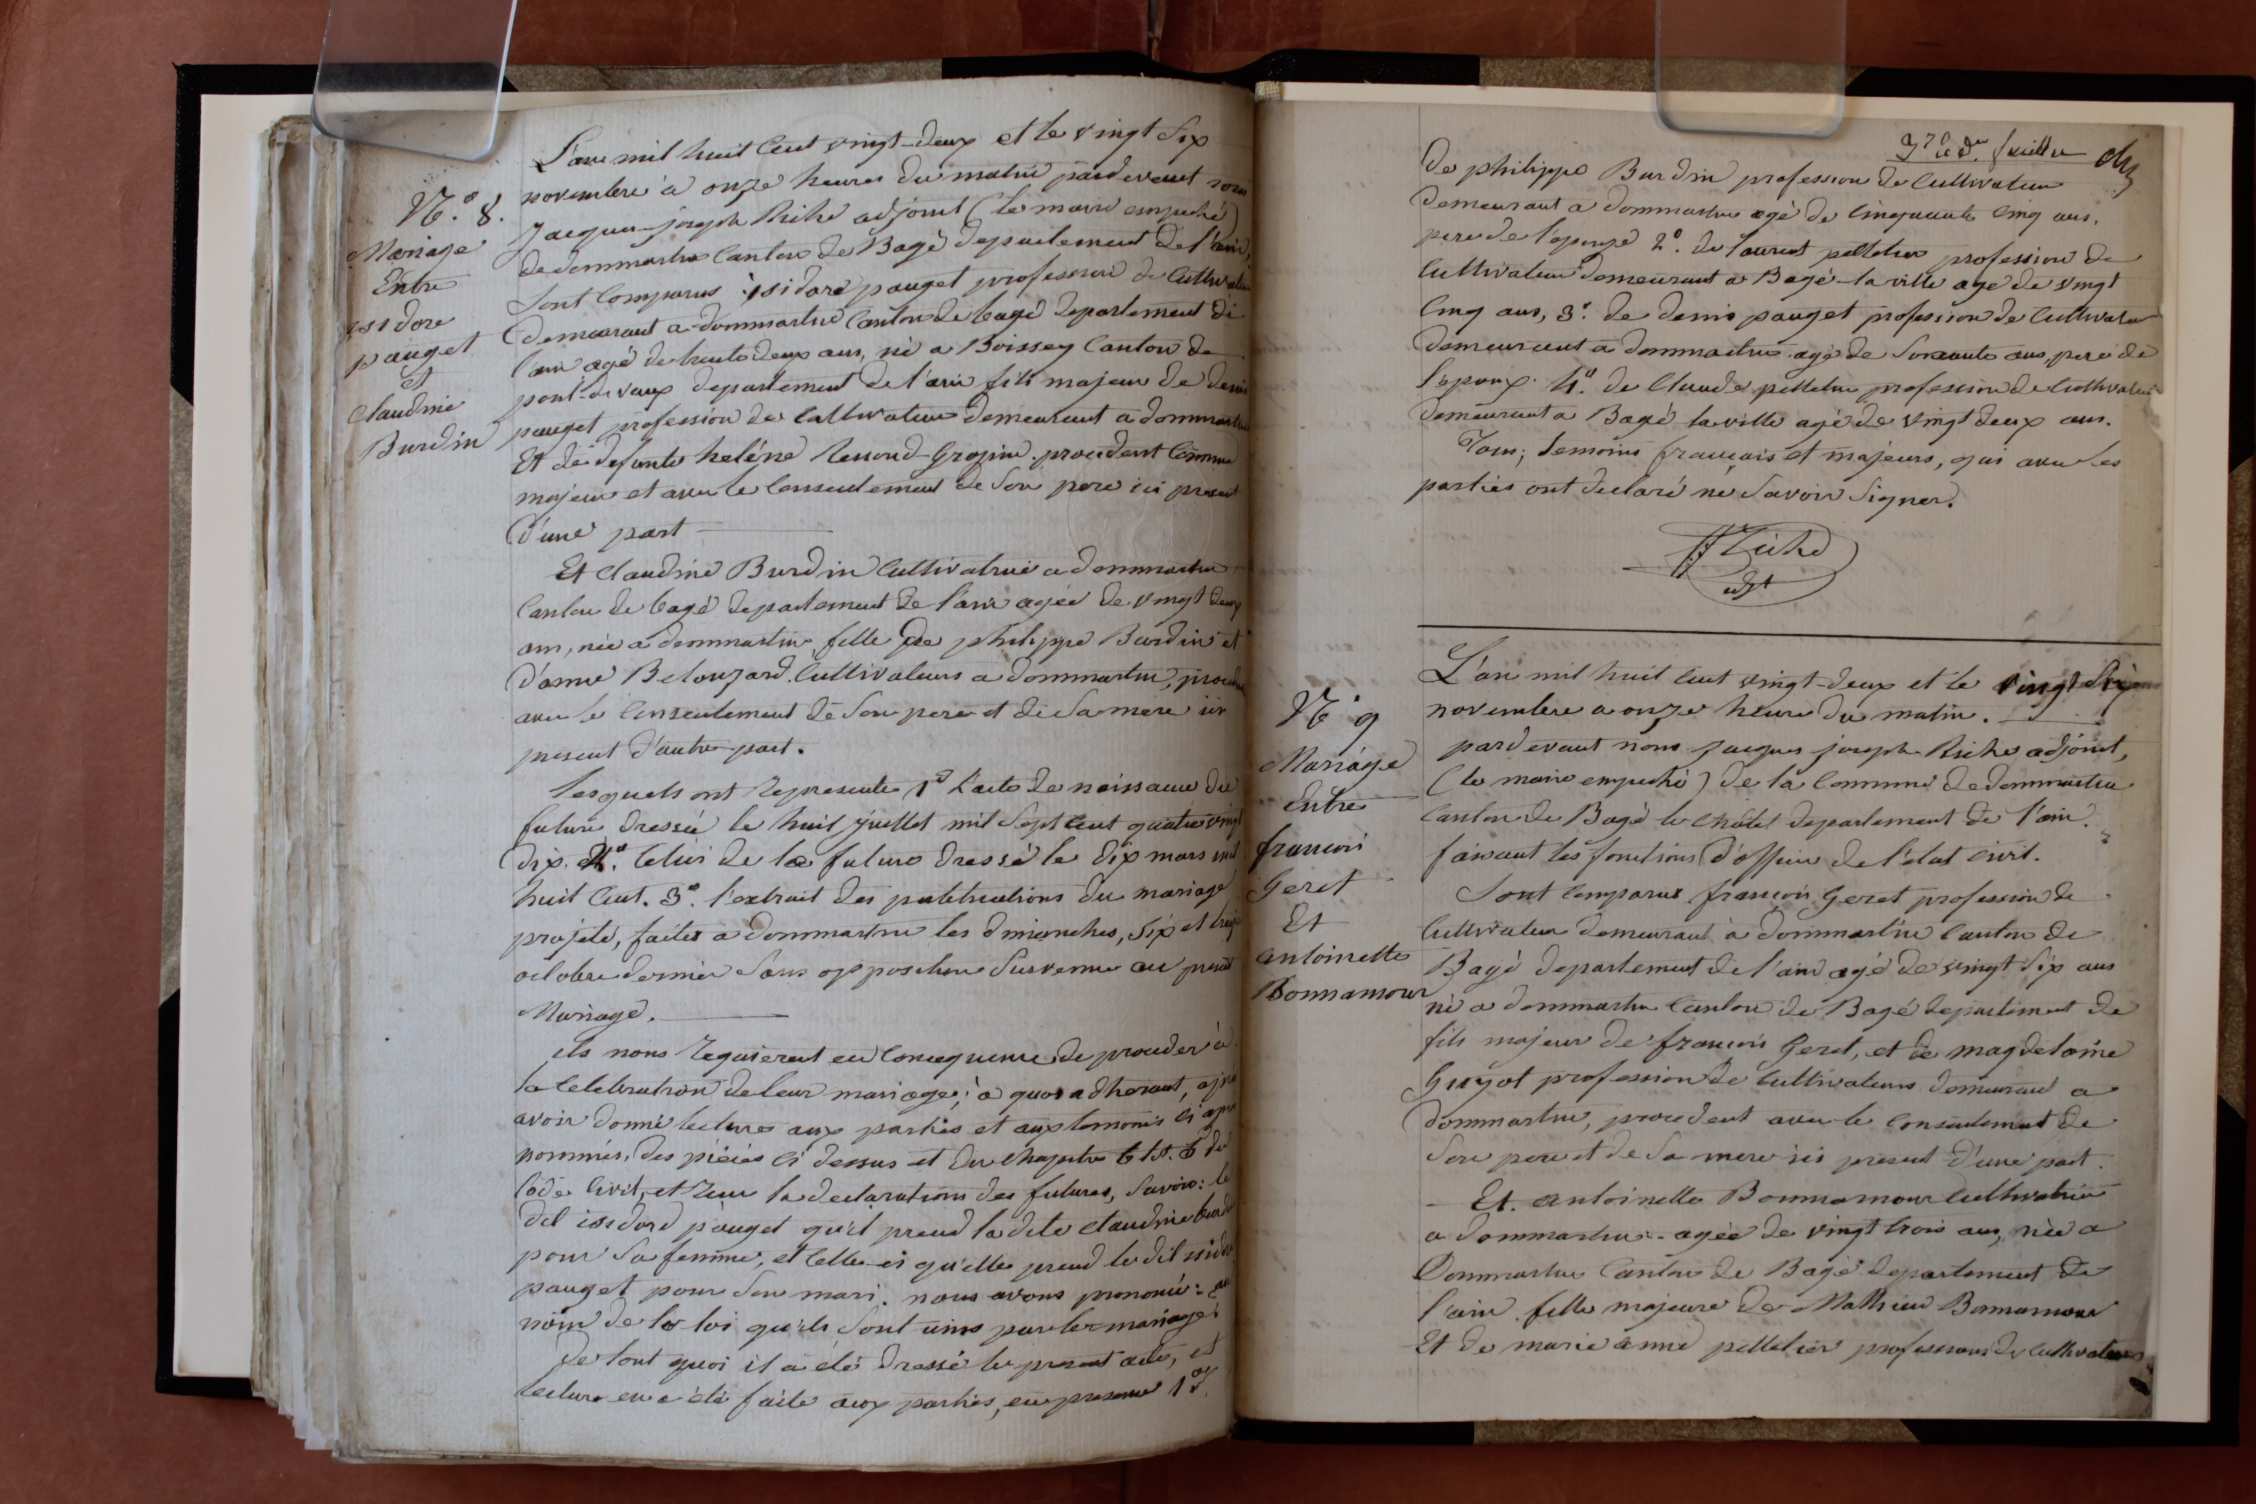 N.° 8.
Mariage
Entre
isidore
pauget
et
Claudine
Burdin
L'an mil huit Cent vingt-deux et le vingt Six
novembre à onze heures du matin pardevant nous
Jacques-joseph Riche adjoint (le maire empeché)
de dommartin Canton de Bagé departement de l'ain,
Sont Comparus isidore pauget profession de Cultivateur
demeurant a dommartin Canton de bagé departement de
l'ain agé de trente deux ans, né a Boissey Canton de
pont-de vaux departement de l'ain fils majeur de denis
pauget profession de Cultivateur demeurant a dommartin
Et de defunte heléne procedent Comme
majeur et avec le Consentement de Son pere ici present
d'une part
Et Claudine Burdin Cultivatrice a dommartin
Canton de bagé departement de l'ain agée de vingt deux
ans, née a dommartin, fille de philippe Burdin et
d'anne Belouzard Cultivateurs a dommartin, procedent
avec le Consentement de Son pere et de Sa mere ici
present d'autre part.
lesquels ont representé 1° l'acte de naissance du
futur dressé le huit juillet mil Sept Cent quatre vingt
dix. 2°. Celui de la future dressé le dix mars mil
huit Cent. 3°. l'extrait des publications du mariage
projeté, faites a dommartin les dimanches, Six et treize
octobre dernier Sans opposition Survenue au present
Mariage.
ils nous requierent en Consequence de proceder à
la Celebration de leur mariage; à quoi adherant, apres
avoir donné lecture aux parties et aux temoins ci apres
nommés, des piéces ci dessus et du Chapitre 6 tit. 5 du
Code Civil, et reçu la declarations des futures, Savoir: le
dit isidore pauget qu'il prend la dite Claudine burdin
pour Sa femme, et Celle-ci qu'elle prend le dit isidore
pauget pour Son mari. nous avons prononcé: au
nom de la loi qu'ils Sont unis par le mariage.
De tout quoi il a été dressé le present acte, et
lecture en a été faite aux parties, en presence 1°
feuillet
de philippe Burdin profession de Cultivateur
demeurant a dommartin agé de Cinquante Cinq ans,
pere de l'epouse 2°. de laurent pelletier profession de
Cultivateur demeurant a Bagé-la ville age de vingt
Cinq ans, 3°. de denis pauget profession de Cultivateur
demeurant a dommartin agé de Soixante ans, pere de
l'epoux. 4°. de Claude pelletier profession de Cultivateur
demeurant a Bagé la ville agé de vingt deux ans.
Tous, temoins français et majeurs, qui avec les
parties ont declaré ne Savoir Signer.
JJ Riche
adjt
N° 9
Mariage
Entre
francois
Geret
Et
antoinette
Bonnamour
L'an mil huit Cent vingt-deux et le vingt Six
novembre a onze heure du matin.
pardevant nous Jacques joseph Riche adjoint,
(le maire empeché) de la Commune de dommartin
Canton de Bagé le Châtel departement de l'ain.
faisant les fonctions d'officier de l'état Civil.
Sont Comparus françois Geret profession de
Cultivateur demeurant à dommartin Canton de
Bagé departement de l'ain agé de vingt Six ans
né a dommartin Canton de Bagé departement de
fils majeur de francois Geret, et de magdelaine
Guyot profession de Cultivateurs demeurant a
dommartin, procedent avec le Consentement de
Son pere et de Sa mere ici present d'une part.
Et. antoinette Bonnamour Cultivatrice
a dommartin agée de vingt trois ans, née a
Dommartin Canton de Bagé departement de
l'ain fille majeure de Mathieu Bonnamour
Et de marie anne pelletier professions de Cultivateurs